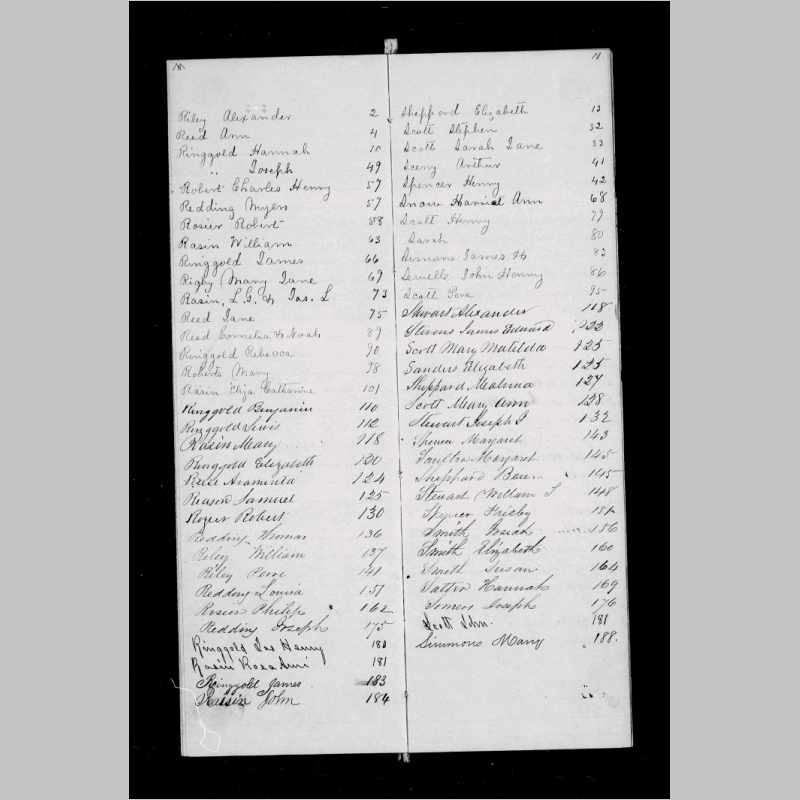 R.
Riley Alexander 2
Reed Ann 4
Ringgold Hannah 10
" Joseph 49
Robert Charles Henry 57
Redding Myers 57
Rosier Robert 58
Rasin William 63
Ringgold James 66
Rigby Mary Jane 69
Rasin, L. G. & Jas. L 73
Reed Jane 75
Reed Cornelia & Noah 89
Ringgold Rebecca 90
Roberts Mary 98
Rasin Eliza Catharine 101
Ringgold Benjamin 110
Ringgold Lewis 112
Rasin Mary 118
Ringgold Elizabeth 120
Rease Araminta 124
Reason Samuel 125
Roger Robert 130
Redding 136
Riley William 137
Riley 141
Redding Louisa 151
Rosier Philip 162
Redding Joseph 175
Ringgold Jas Henry 180
Rasin Rosa Ann 181
Ringgold James 183
Raisin John 184
Sheppord Elizabeth 13
Scott Stephen 32
Scott Sarah Jane 33
Sceny Arthur 41
Spencer Henry 42
Snow Harriet Ann 68
Scott Henry 79
Sarah 80
Simmons James H 83
John Henry 86
Scott 95
Stewart Alexander 118
Stevens James Edward 122
Scott Mary Matilda 125
Sanders Elizabeth 125
Sheppard Malvina 127
Scott Mary Ann 128
Stewart Joseph J 132
Spencer Margaret 143
Margaret 145
Sheppard 145
Stewart William T 148
Spencer
Smith Josiah 156
Smith Elizabeth 160
Smith Susan 164
Hannah 169
Somers Joseph 176
Scott John. 181
Simmons Mary 188.